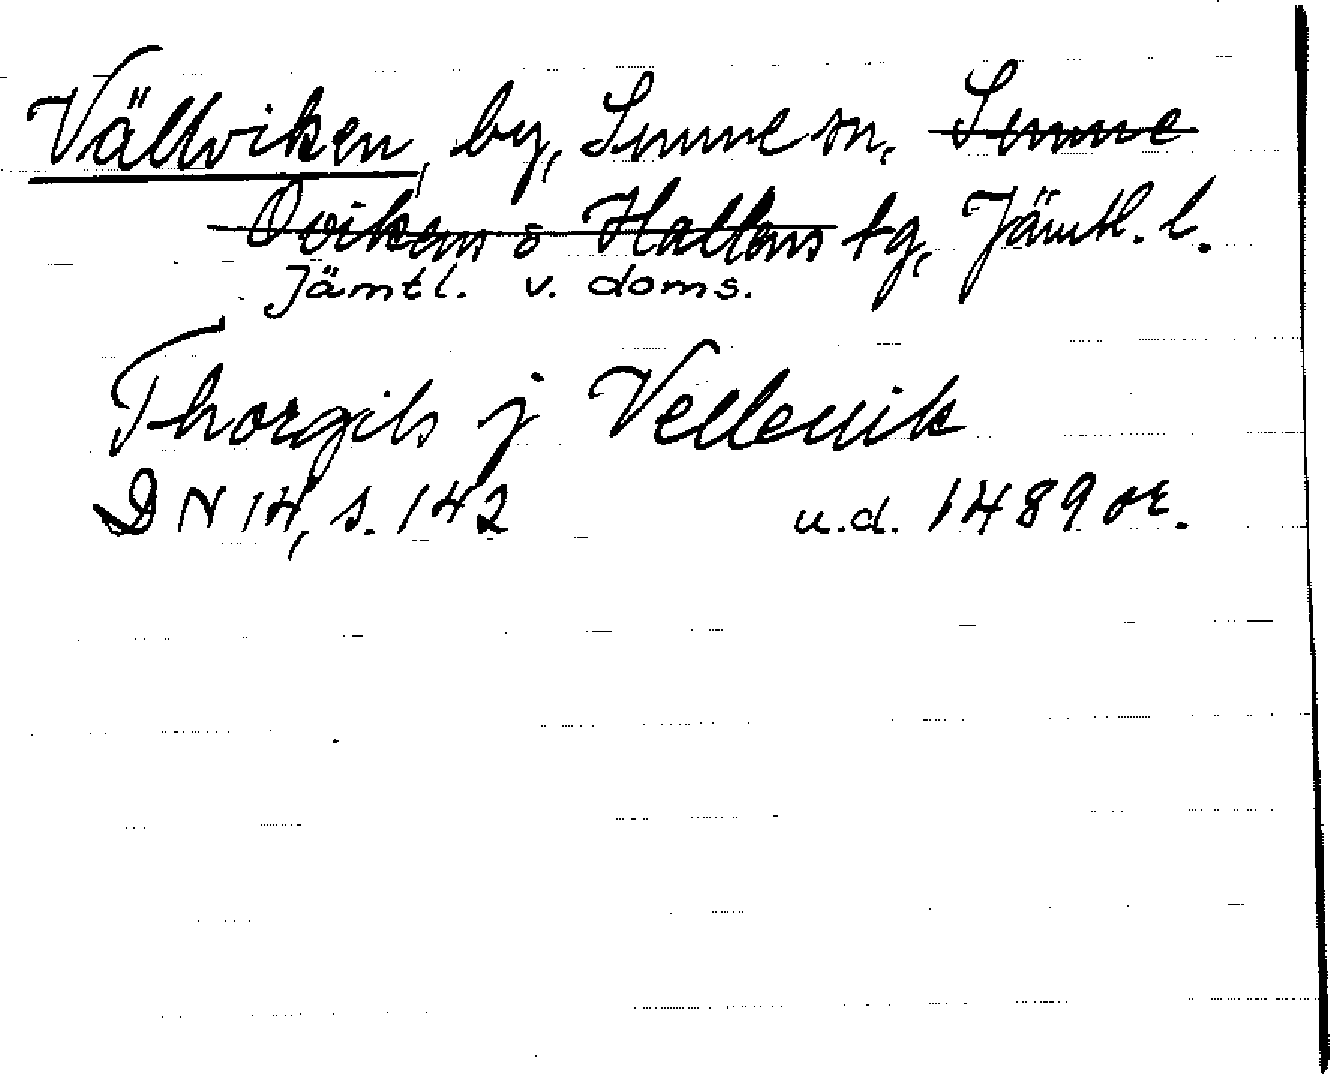 Vällviken, by, Sunne sn. Sunne
Ovikens o Hallens tg, Jämtl. l.
Jämtl. v. doms.
Thorgils j Velleuik
DN 14, s. 142 u.d. 1489 or.